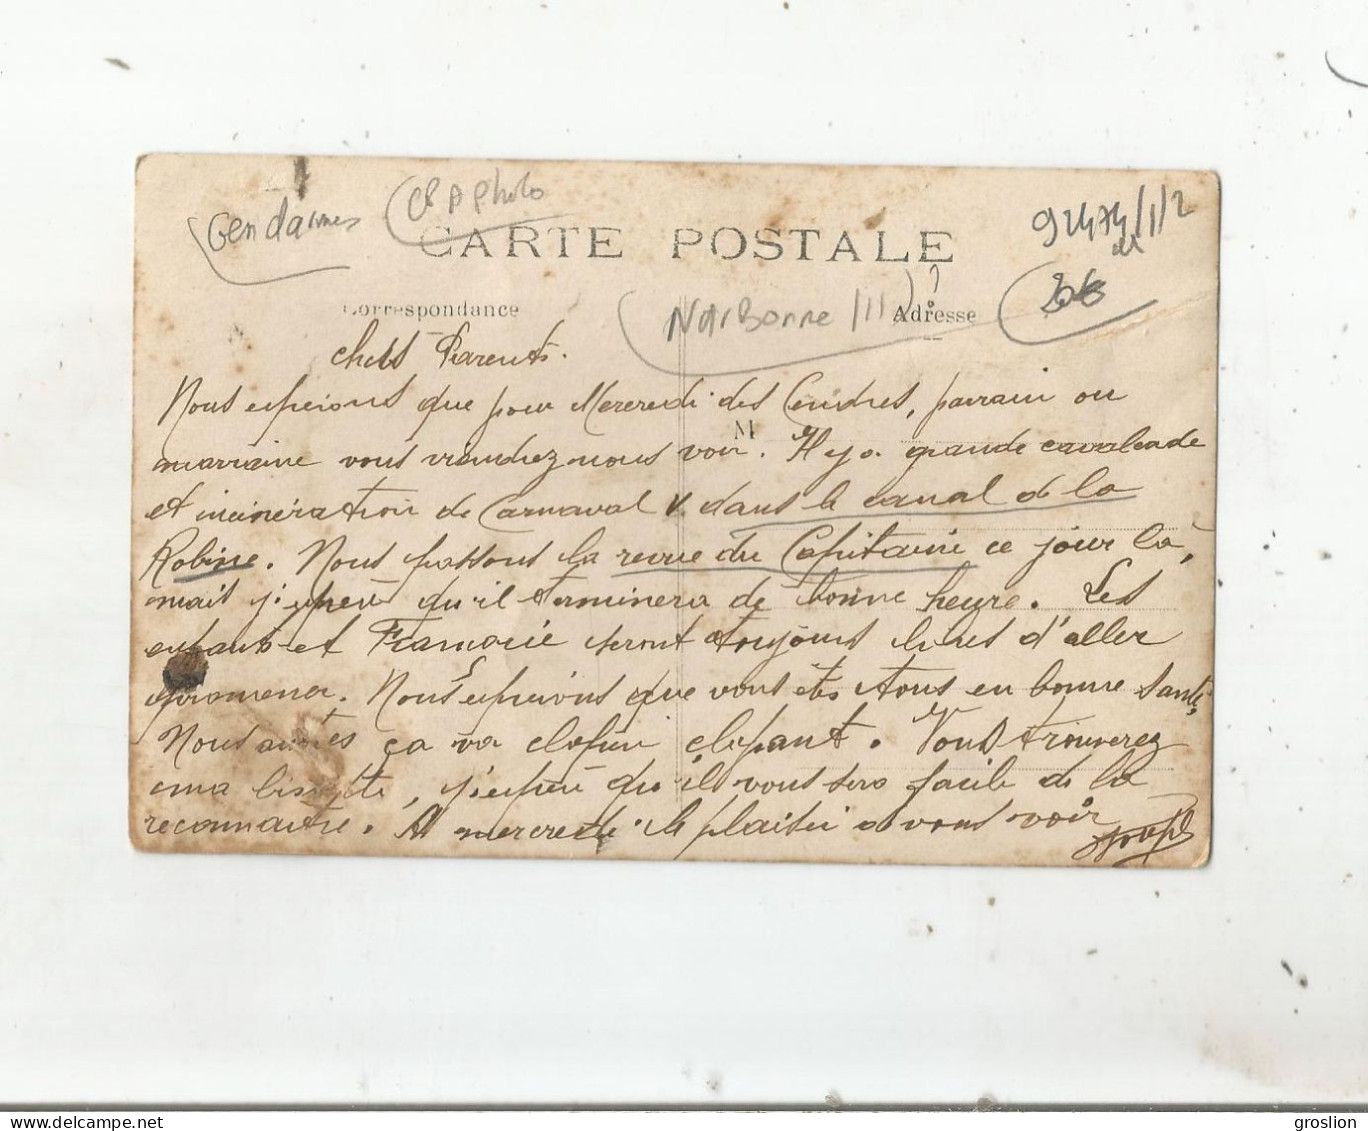 Gendarmes
CPA photo
92474/1/2
CARTE POSTALE
Correspondance
Narbonne /11 ?
Adresse
chers Parents.
Nous espérons que pour Mercredi des Cendres, parrain ou
M
marraine vous viendrez nous voir. Il y a grande cavalcade
et incinération de Carnaval dans le canal de la
Robine. Nous passons la revue du Capitaine ce jour là,
mais j'espère qu'il terminera de bonne heure. Les
enfants et Francorie seront toujours libres d'aller
promener. Nous espérions que vous êtes tous en bonne santé,
Nous autres ça va clopin clopant. Vous trouverez
ma binette, j'espère qu'il vous sera facile de la
reconnaître. A mercredi le plaisir de vous voir
Joseph
groslion